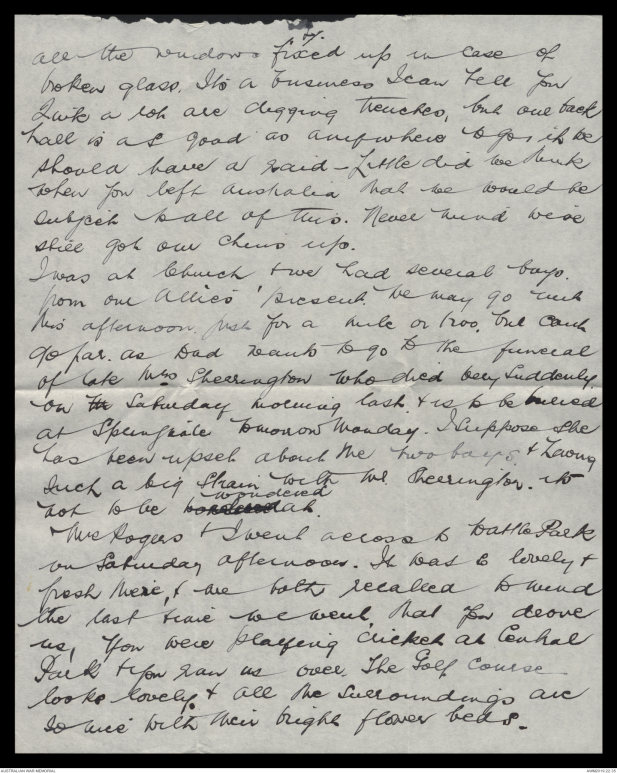 all the windows fixed up in case of
broken glass. Its a business I can tell you
Quite a lot are digging trenches, but our back
hall is as good as anywhere to go if we
should have a raid – Little did we think
when you left Australia that we would be
subject to all of this. Never mind we've
still got our chins up.
I was at Church & we had several boys.
from our Allies' present. We may go out
this afternoon. just for a mile or two, but cant
go far. as Dad wants to go to the funeral
of late Mrs Sherrington who died very suddenly.
on Saturday morning last & is to be buried
at Springvale tomorrow Monday. I suppose she
has been upset about the two boys & having
such a big strain with Mr. Sherrington. its
not to be wondered at.
Mrs Rogers & I went across to Wattle Park
on Saturday afternoon. It was so lovely &
fresh there, & we both recalled to mind
the last time we went, that you drove
us, you were playing cricket at Central
Park & you ran us over. The Golf Course
looks lovely & all the surroundings are
so nice with their bright flower beds.
AUSTRALIAN WAR MEMORIAL